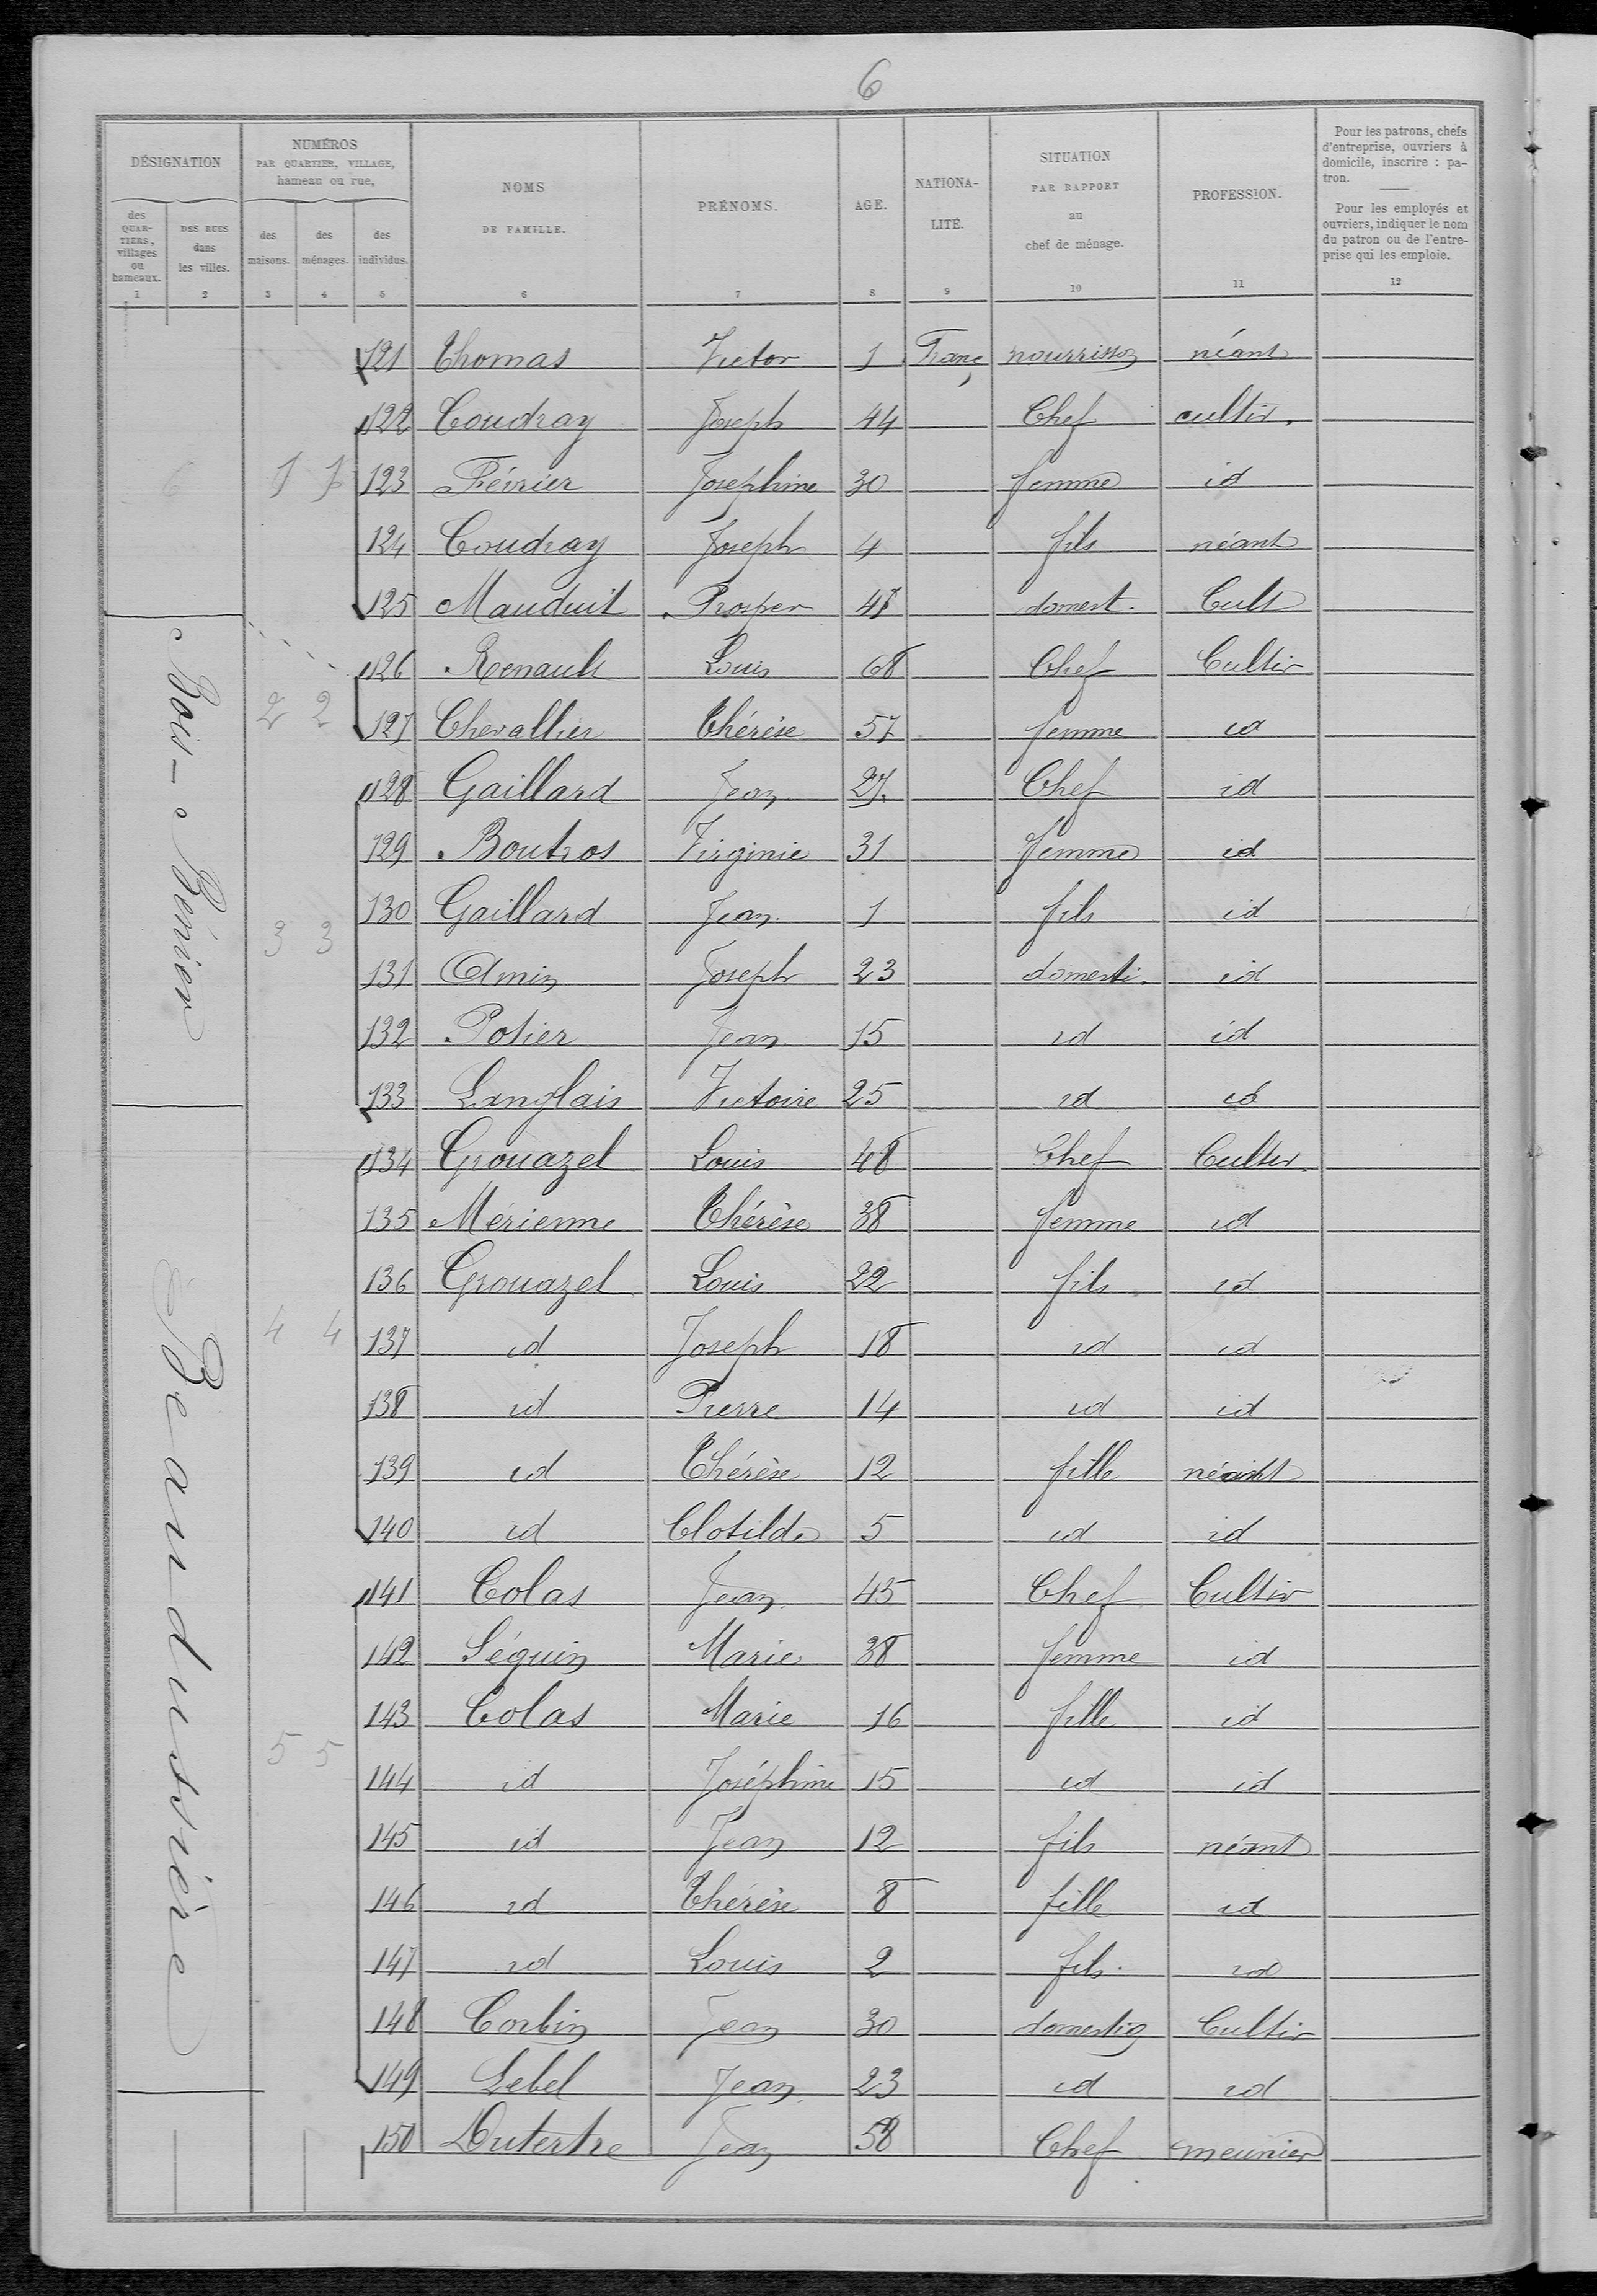 6
DÉSIGNATION
NUMÉROS
PAR QUARTIER, VILLAGE,
hameau ou rue,
des
QUAR-
TIERS,
villages
ou
hameaux.
DES RUES
dans
les villes.
des
maisons.
des
ménages.
des
individus.
NOMS
DE FAMILLE.
PRÉNOMS.
AGE.
NATIONA-
LITÉ.
SITUATION
PAR RAPPORT
au
chef de ménage.
PROFESSION.
Pour les patrons, chefs
d'entreprise, ouvriers à
domicile, inscrire : pa-
tron.
Pour les employés et
ouvriers, indiquer le nom
du patron ou de l'entre-
prise qui les emploie.
1 2 3 4 5 6 7 8 9 10 11 12
121 Thomas Victor 1 Franç nourrisson néant
122 Coudray Joseph 44 Chef cultiv.
6 1 1 123 Février Josephine 30 femme id
124 Coudray Joseph 4 fils néant
125 Mauduit Prosper domest. Cult
Bois-Bénier
126 Renault Louis 68 Chef Cultiv
2 2 127 Chevallier Thérèse 57 femme id
128 Gaillard Jean 27 Chef id
129 Boutros Virginie 31 femme id
130 Gaillard Jean 1 fils id
3 3
131 Amin Joseph 23 domesti. id
132 Potier Jean 15 id id
133 Langlais Victoire 25 id id
Beaudussière
134 Grouazel Louis 48 Chef Cultiv.
135 Mérienne Thérèse 38 femme id
136 Grouazel Louis 22 fils id
4 4 137 id Joseph 18 id id
138 id Pierre 14 id id
139 id Thérèse 12 fille néant
140 id Clotilde 5 id id
141 Colas Jean 45 Chef Cultiv
142 Séguin Marie 38 femme id
143 Colas Marie 16 fille id
5 5
144 id Joséphine 15 id id
145 id Jean 12 fils néant
146 id Thérèse 8 fille id
147 id Louis 2 fils id
148 Corbin Jean 30 domestiq Cultiv
149 Lebel Jean 23 id id
150 Dutertre Jean 58 Chef meunier